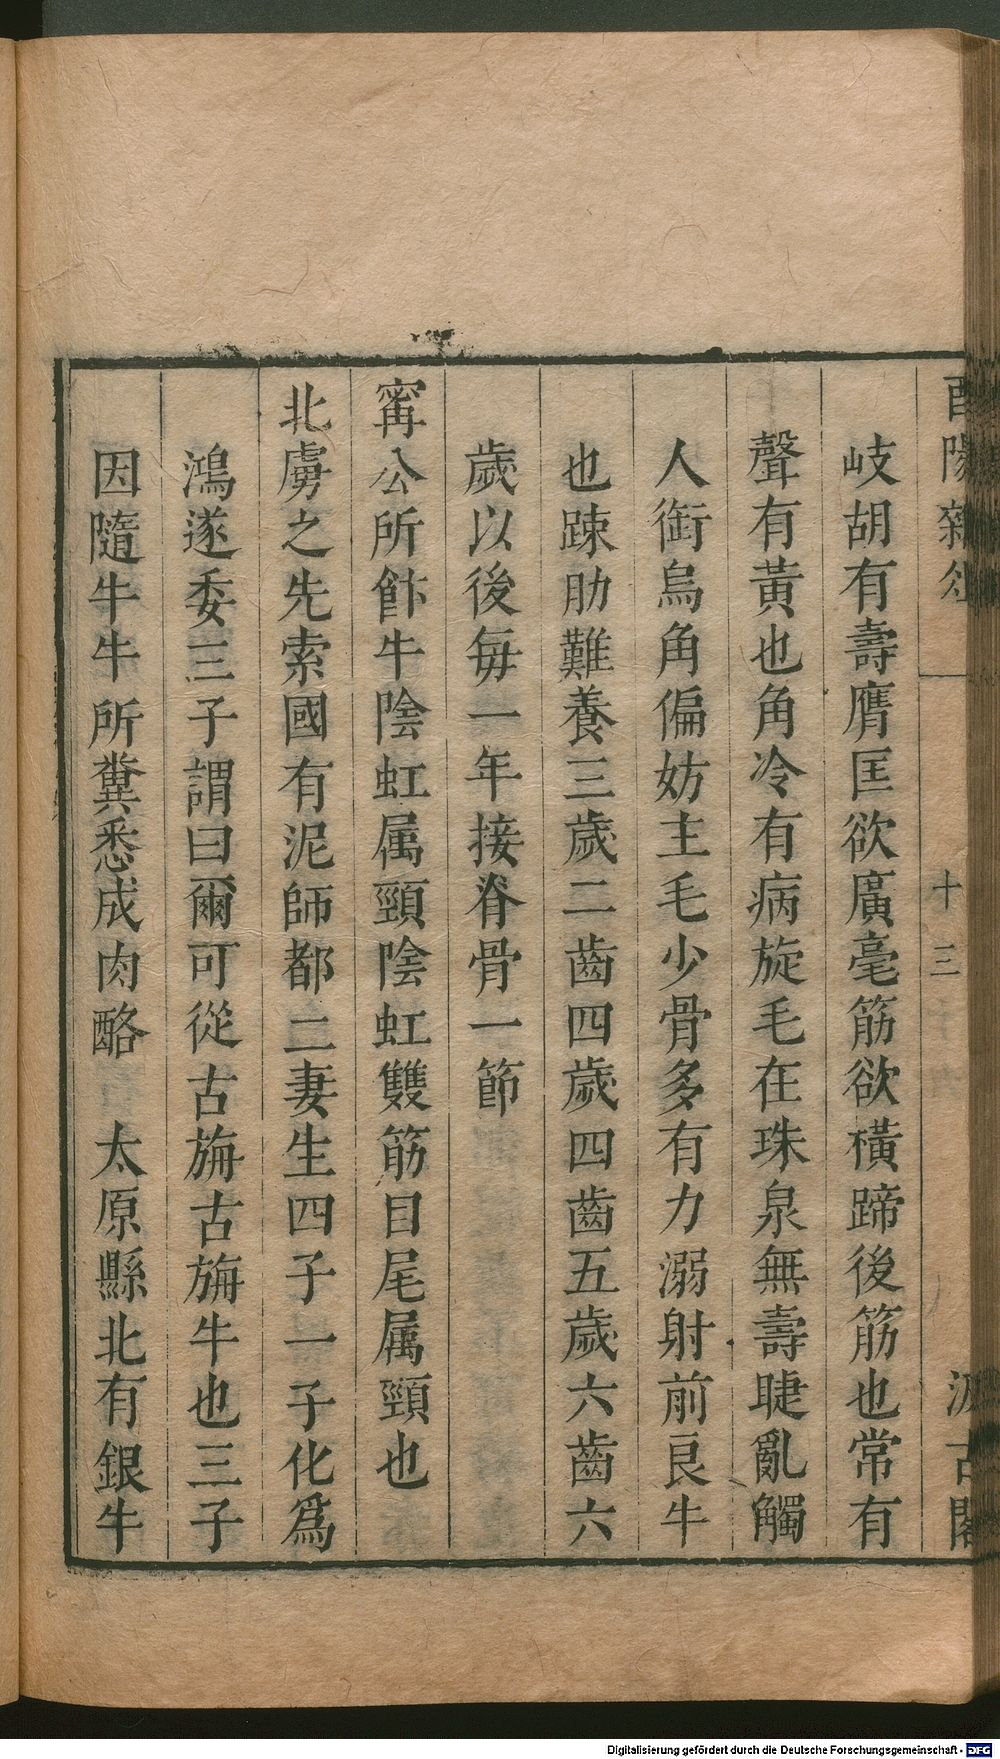 酉陽雜俎 十三 汲古閣
岐胡有壽膺匡欲廣毫筋欲橫蹄後筋也常有
聲有黃也角冷有病旋毛在珠泉無壽睫亂觸
人銜烏角偏妨主毛少骨多有力溺射前良牛
也踈肋難養三歲二齒四歲四齒五歲六齒六
歲以後每一年接脊骨一節
甯公所飰牛陰虹属頸陰虹雙筋目尾属頸也
北虜之先索國有泥師都二妻生四子一子化爲
鴻遂委三子謂曰爾可從古旃古旃牛也三子
因隨牛牛所糞悉成肉酪 太原縣北有銀牛
Digitalisierung gefördert durch die Deutsche Forschungsgemeinschaft - DFG